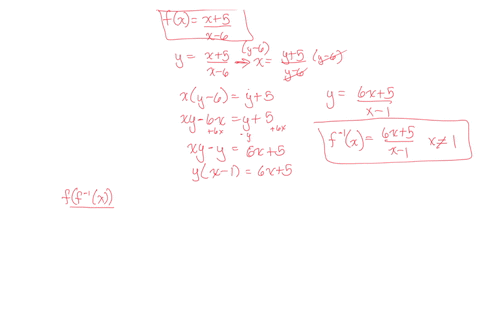 f(x) = (x+5)/(x-6)
y = (x+5)/(x-6) → (y-6) x = (y+5)/(y-6) (y-6)
x(y-6) = y+5
xy - 6x = y+5
+6x -y +6x
xy - y = 6x+5
y(x-1) = 6x+5
y = (6x+5)/(x-1)
f⁻¹(x) = (6x+5)/(x-1) x ≠ 1
f(f⁻¹(x))